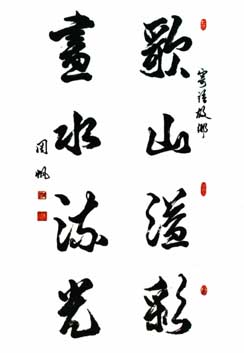 寄语故乡
歌山溢彩
画水流光
周帆